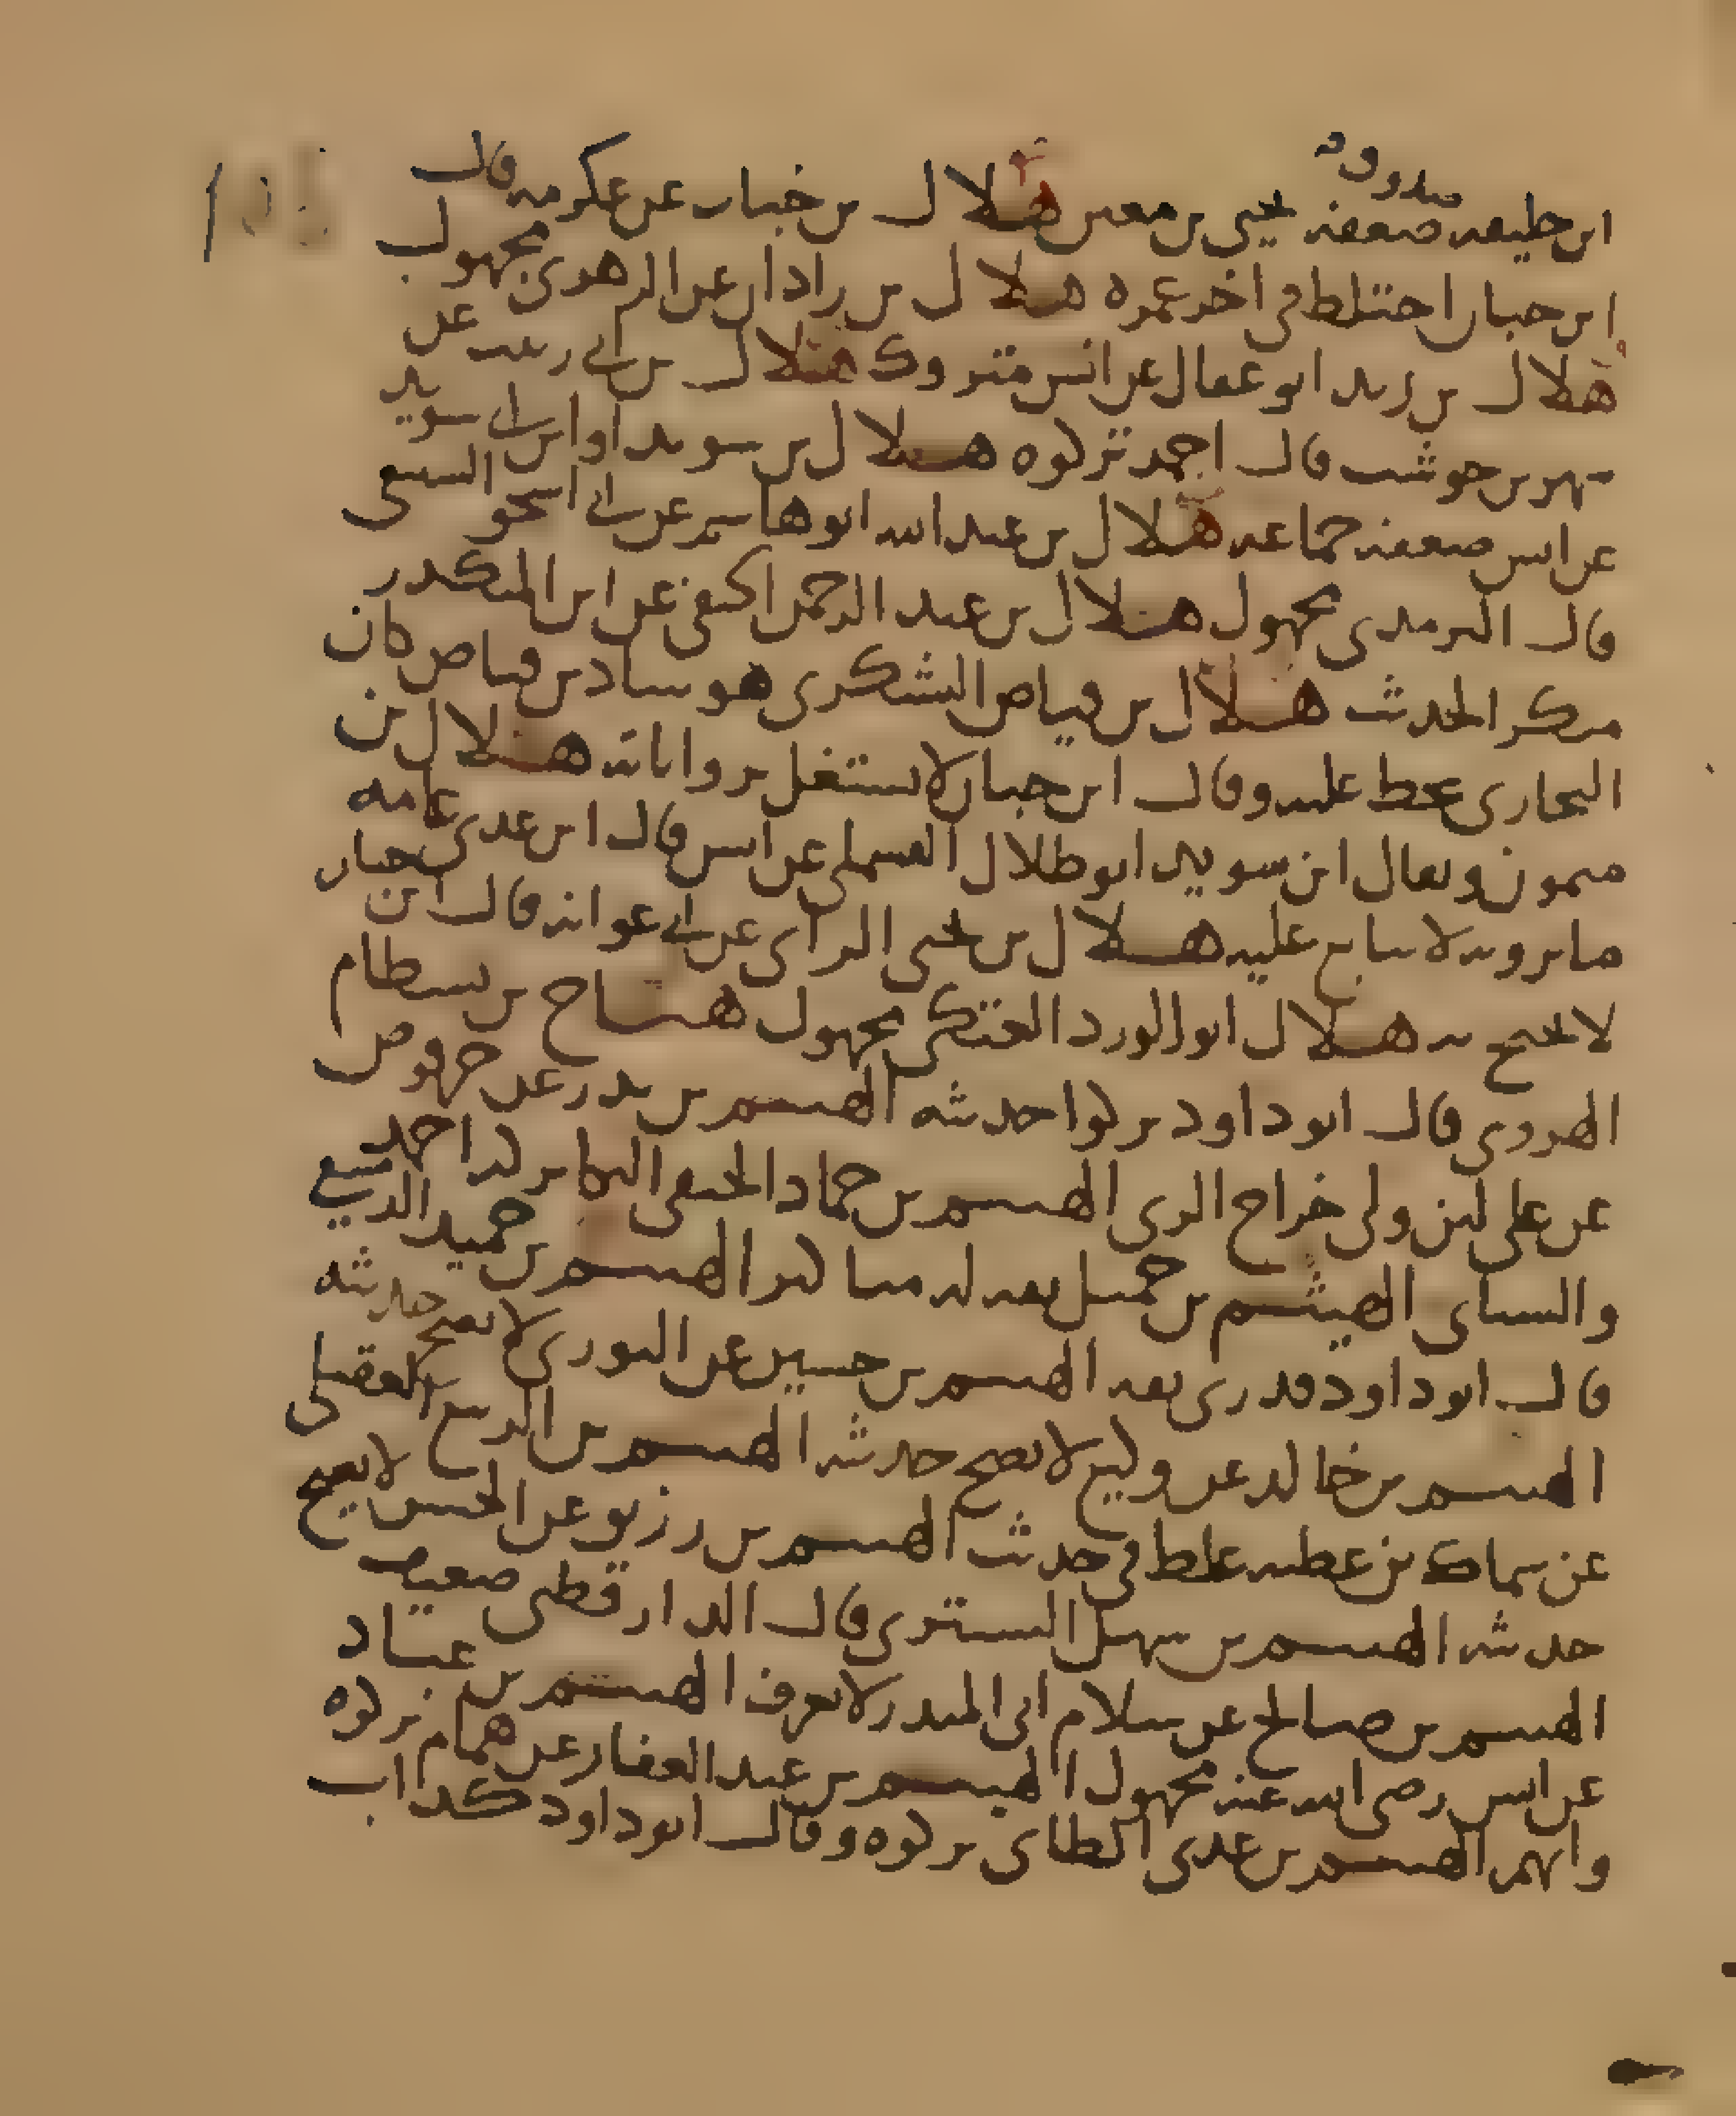 صدوق
ابن خليفه ضعفه يحيى بن معين هلال بن خباب عن عكرمه قال
ابن حبان اختلط في اخر عمره هلال بن زاذان عن الزهري مجهول
هلال بن زيد ابو عقال عن انس متروك هلال بن ابي زينب عن
شهر بن حوشب قال احمد تركوه هلال بن سويد او ابن ابي سويد
عن انس ضعفه جماعه هلال بن عبد الله ابو هاشم عن ابي اسحق السبيعي
قال الترمذي مجهول هلال بن عبد الرحمن الحنفي عن ابن المنكدر
منكر الحديث هلال بن فياض اليشكري هو شاذ بن فياض كان
البخاري يحط عليه وقال ابن حبان لا يشتغل برواياته هلال بن
ميمون ويقال ابن سويد ابو ظلال القسملي عن انس قال ابن عدي عامه
ما يرويه لا يتابع عليه هلال بن يحيى الراي عن ابي عوانه قال ابن حبان
لا يحتج به هلال ابو الورد العتكي مجهول هياج بن بسطام
الهروي قال ابو داود تركوا حديثه الهيثم بن بدر عن حرقوص
عن علي لين ولي خراج الري الهيثم بن حماد الحنفي البكا تركه احمد
والنساي الهيثم بن جميل ثقه له مناكير الهيثم بن حميد الدمشقي
قال ابو داود قدري ثقه الهيثم بن حسين عن الثوري لا يصح حديثه
الهيثم بن خالد عن وكيع لا يصح حديثه الهيثم بن الربيع العقيلي
عن سماك بن عطيه غلط في حديث الهيثم بن رزيق عن الحسن لا يصح
حديثه الهيثم بن سهل التستري قال الدارقطني ضعيف
الهيثم بن صالح عن سلام ابي المنذر لا يعرف الهيثم بن عباد
عن انس رضي الله عنه مجهول الهيثم بن عبد الغفار عن همام تركوه
واتهم الهيثم بن عدي الطاي تركوه وقال ابو داود كذاب